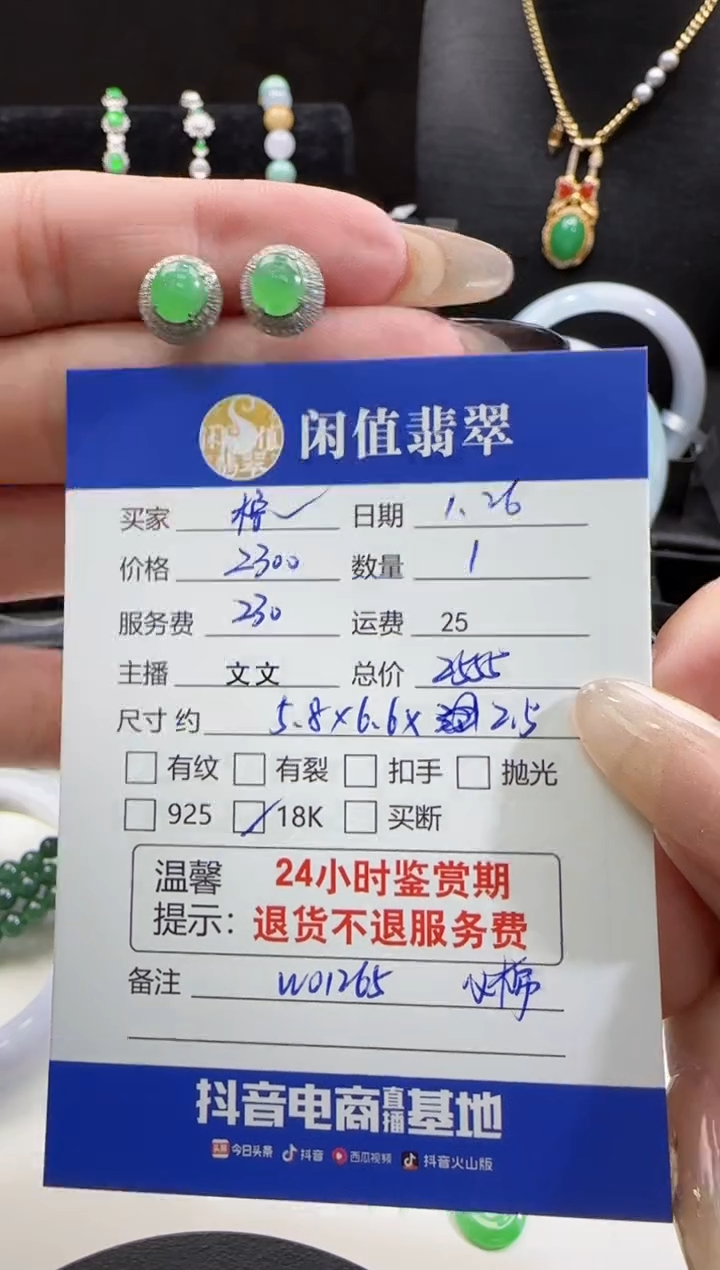 闲值翡翠
买家 檸 日期 1.26
价格 2300 数量 1
服务费 230 运费 25
主播 文文 总价 2555
尺寸 约 5.8×6.6× 2.5
有纹 有裂 扣手 抛光
925 18K 买断
温馨提示: 24小时鉴赏期
退货不退服务费
备注 W01265
抖音电商直播基地
头条 今日头条 抖音 西瓜视频 抖音火山版